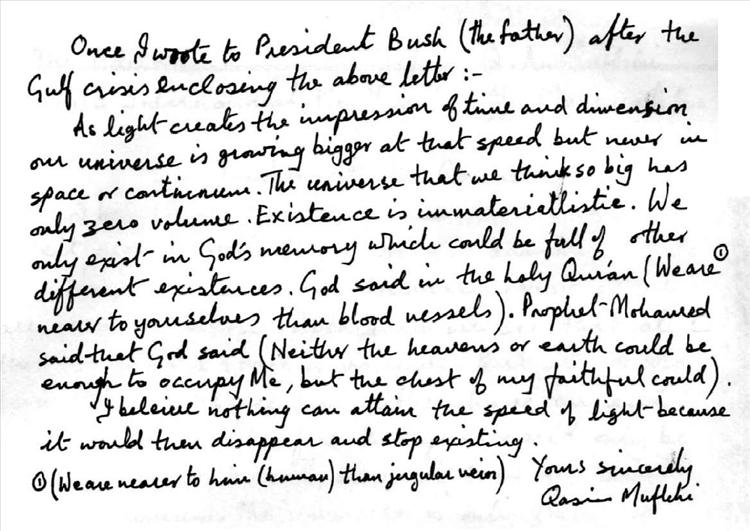 Once I wrote to President Bush (the father) after the
Gulf crisis enclosing the above letter :-
As light creates the impression of time and dimension
our universe is growing bigger at that speed but never in
space or continuum. The universe that we think so big has
only zero volume. Existence is immateriallistic. We
only exist in God's memory which could be full of other
different existences. God said in the holy Qur'an (We are ①
nearer to yourselves than blood vessels). Prophet Mohamed
said that God said (Neither the heavens or earth could be
enough to occupy Me, but the chest of my faithful could).
I beleive nothing can attain the speed of light because
it would then disappear and stop existing.
① (We are nearer to him (human) than jugular vein) Yours sincerely
Qasim Muflehi